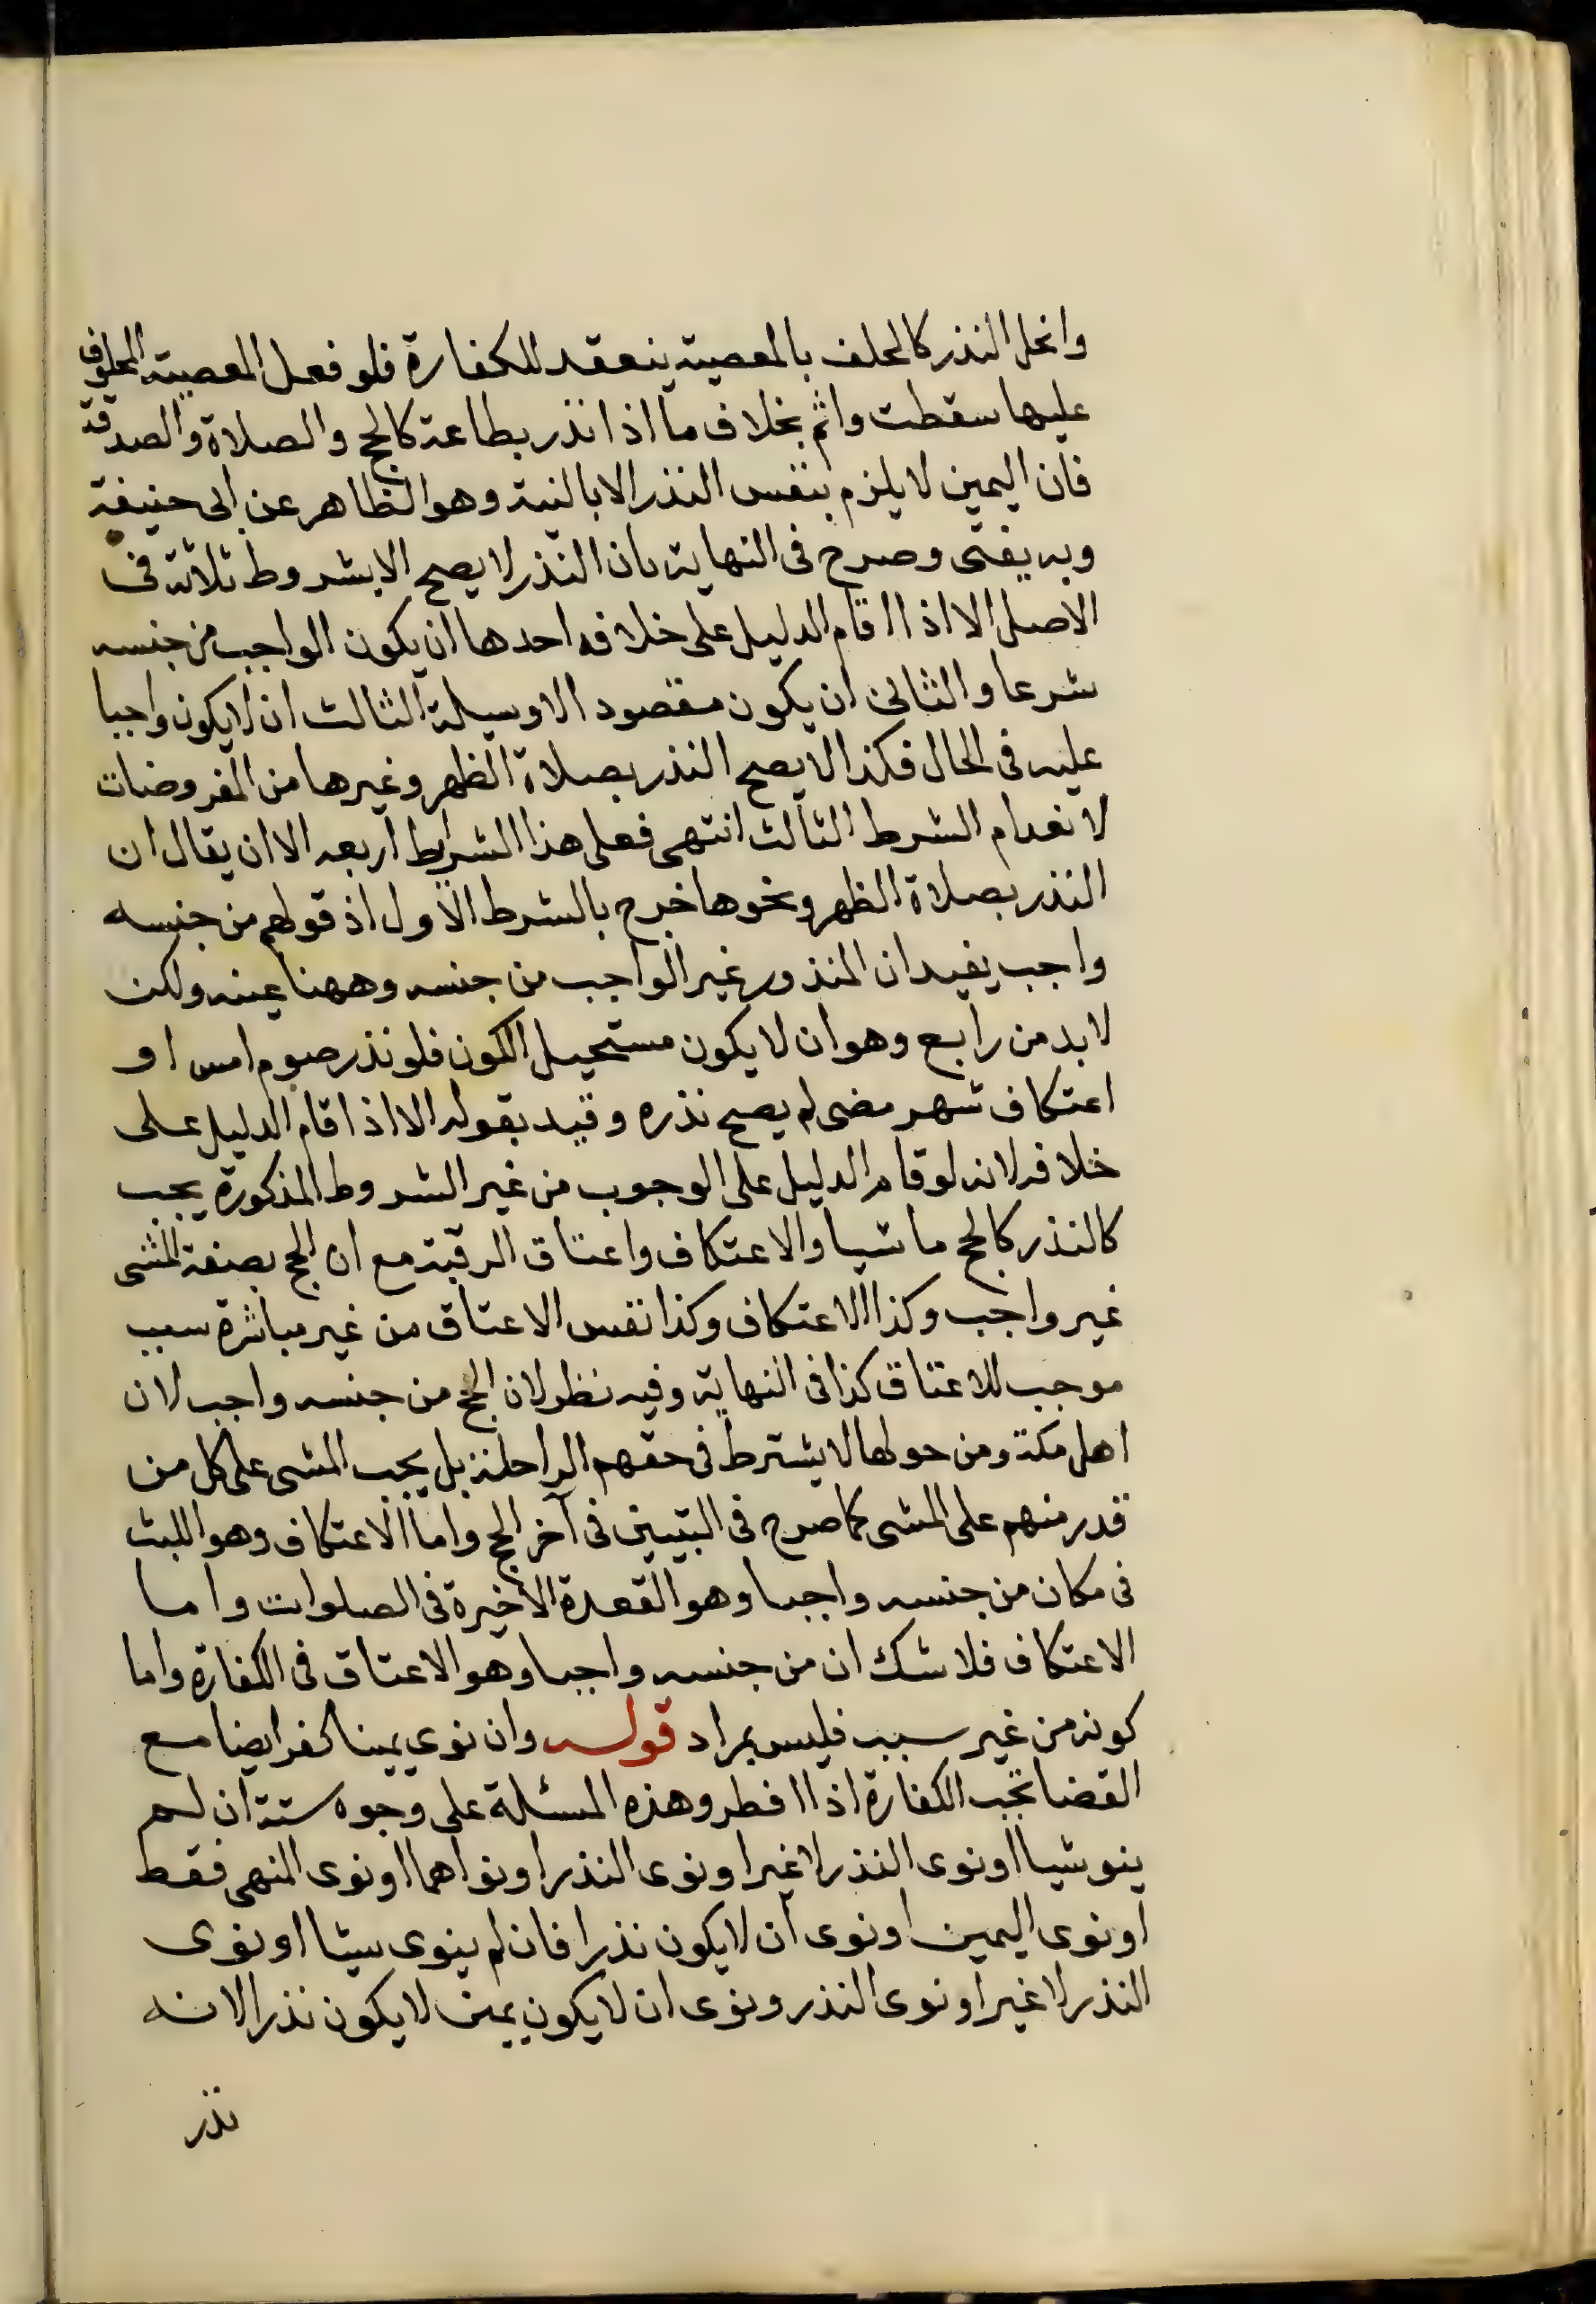 وانحل النذر كالحلف بالمعصية ينعقد للكفارة فلو فعل المعصية المحلوف
عليها سقطت واثم بخلاف ما اذا نذر بطاعة كالحج والصلاة والصدقة
فان اليمين لا يلزم بنفس النذر الا بالنية وهو الظاهر عن ابى حنيفة
وبه يفتى وصرح فى النهاية بان النذر لا يصح الا بشروط ثلاثة فى
الاصل الا اذا اقام الدليل على خلافه احدها ان يكون الواجب من جنسه
شرعا والثانى ان يكون مقصود الا وسيلة الثالث ان لا يكون واجبا
عليه فى الحال فكذا لا يصح النذر بصلاة الظهر وغيرها من المفروضات
لانعدام الشرط الثالث انتهى فعلى هذا الشرايط اربعه الا ان يقال ان
النذر بصلاة الظهر ونحوها خرج بالشرط الاول اذ قولهم من جنسه
واجب يفيد ان المنذور غير الواجب من جنسه وههنا عينه ولكن
لا بد من رابع وهو ان لا يكون مستحيل الكون فلو نذر صوم امس او
اعتكاف شهر مضى لم يصح نذره وقيد بقوله الا اذا قام الدليل على
خلافه لانه لو قام الدليل على الوجوب من غير الشروط المذكورة يجب
كالنذر كالحج ماشيا والاعتكاف واعتاق الرقبة مع ان الحج بصفة المشى
غير واجب وكذا الاعتكاف وكذا نفس الاعتاق من غير مباشرة سبب
موجب للاعتاق كذا فى النهاية وفيه نظر لان الحج من جنسه واجب لان
اهل مكة ومن حولها لا يشترط فى حقهم الراحلة بل يجب المشى على كل من
قدر منهم على المشى كما صرح فى التبيين فى آخر الحج واما الاعتكاف وهو اللبث
فى مكان من جنسه واجبا وهو القعدة الاخيرة فى الصلوات واما
الاعتكاف فلا شك ان من جنسه واجبا وهو الاعتاق فى الكفارة واما
كونه من غير سبب فليس بمراد قوله وان نوى يمينا كفر ايضا مع
القضا تجب الكفارة اذا افطر وهذه المسئلة على وجوه ستة ان لم
ينو شيا او نوى النذر لا غير او نوى النذر او نواهما او نوى المنهى فقط
او نوى اليمين او نوى ان لا يكون نذرا فان لم ينوى سيئا او نوى
النذر لا غير او نوى النذر ونوى ان لا يكون يمين لا يكون نذر الانه
نذر